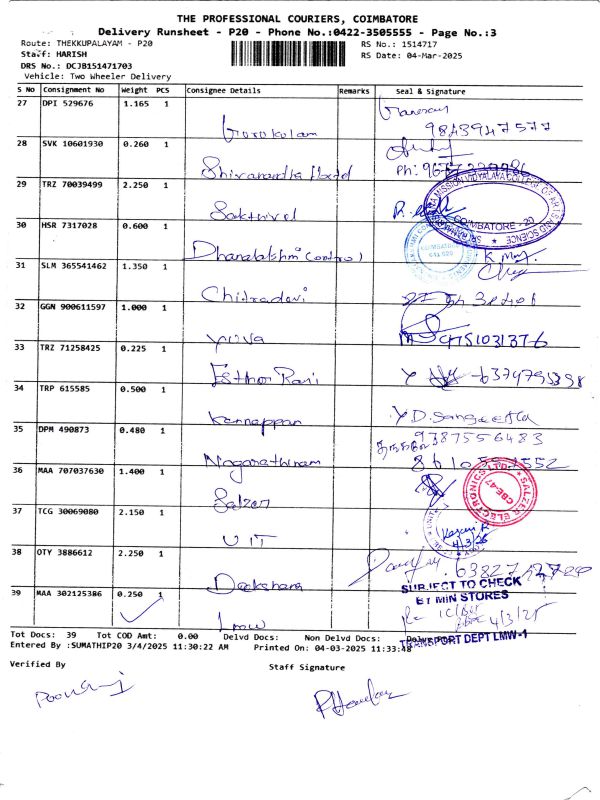 THE PROFESSIONAL COURIERS, COIMBATORE
Delivery Runsheet - P20 - Phone No.:0422-3505555 - Page No.:3
Route: THEKKUPALAYAM - P20
RS No.: 1514717
Staff: HARISH
RS Date: 04-Mar-2025
DRS No.: DCJB151471703
Vehicle: Two Wheeler Delivery
S No Consignment No Weight PCS Consignee Details Remarks Seal & Signature
27 DPI 529676 1.165 1 Gurukulam
9843947577
28 SVK 10601930 0.260 1 Shivanandha
Ph:
29 TRZ 70039499 2.250 1 Sakthivel
COIMBATORE - 20
30 HSR 7317028 0.600 1 Dhanalakshmi
31 SLM 365541462 1.350 1 Chitradevi
32 GGN 900611597 1.000 1 yuva
33 TRZ 71258425 0.225 1 Esther Rani
6374795398
34 TRP 615585 0.500 1 Kannappan
D. Sangeetha
9387556483
35 DPM 490873 0.480 1 Nagarathinam
36 MAA 707037630 1.400 1 Salzer
SALZER ELECTRONICS LTD
CBE-47
37 TCG 30069080 2.150 1 UIT
4/3/25
38 OTY 3886612 2.250 1 Deekshana
SUBJECT TO CHECK
BY MIN STORES
39 MAA 302125386 0.250 1 Lmw
4/3/25
TRANSPORT DEPT LMW-1
Tot Docs: 39 Tot COD Amt: 0.00 Delvd Docs: Non Delvd Docs:
Entered By :SUMATHIP20 3/4/2025 11:30:22 AM Printed On: 04-03-2025 11:33:48
Verified By
Staff Signature